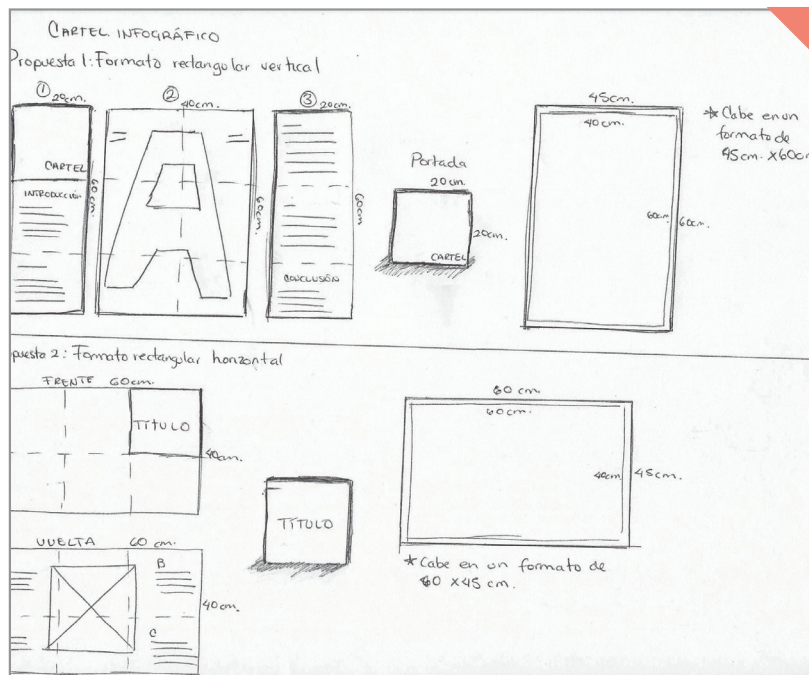 CARTEL INFOGRÁFICO
Propuesta 1: Formato rectangular vertical
① 20cm.
CARTEL
INTRODUCCIÓN
60 cm.
② 40cm.
A
60 cm.
③ 20cm.
60cm
CONCLUSIÓN
Portada
20 cm.
20cm.
CARTEL
45cm.
40 cm.
60cm
60cm.
* Cabe en un
formato de
45cm. X 60cm
puesta 2: Formato rectangular horizontal
FRENTE 60cm.
TÍTULO
40cm.
TÍTULO
VUELTA 60 cm.
B
C
40cm.
60 cm.
60cm.
40cm
45cm.
* Cabe en un formato de
60 X 45 cm.